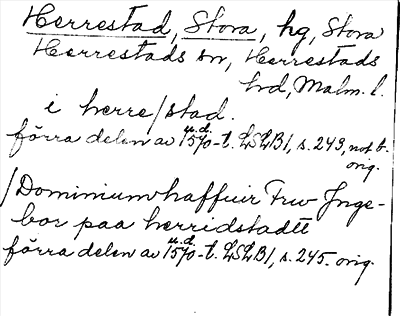 Herrestad, Stora, hg, Stora
Herrestads sn, Herrestads
hd, Malm. l.
i herre/stad.
förra delen av u.d. 1570-t. LSLB1, s. 243, not b.
orig.
/Dominium haffuir Frw Jnge-
bor paa herridstadtt
förra delen av u.d. 1570-t. LSLB1, s. 245. orig.